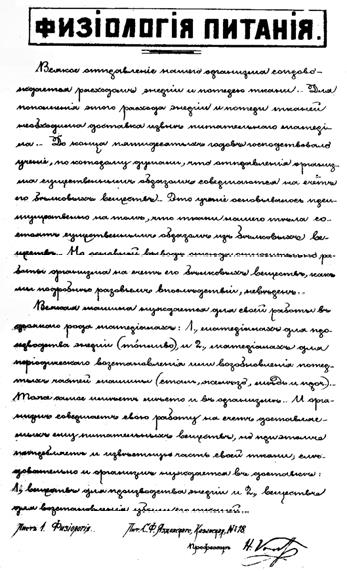 ФИЗІОЛОГІЯ ПИТАНІЯ.
Всякое отправленіе нашего организма сопрово-
ждается расходомъ энергіи и потерею ткани... Для
пополненія этого расхода энергіи и потери тканей
необходима доставка извнѣ питательнаго матеріа-
ла... До конца пятидесятыхъ годовъ господствовало
ученіе, по которому думали, что отправленія организ-
ма существеннымъ образомъ совершаются на счетъ
его бѣлковыхъ веществъ. Это ученіе основывалось преи-
мущественно на томъ, что ткани нашего тѣла со-
стоятъ существеннымъ образомъ изъ бѣлковыхъ ве-
ществъ. Но подобный выводъ относительно ра-
боты организма на счетъ его бѣлковыхъ веществъ, какъ
мы подробно разовьемъ впослѣдствіи, невѣренъ...
Всякая машина нуждается для своей работы въ
двоякаго рода матеріалахъ: 1, матеріалахъ для про-
изводства энергіи (топливо), и 2, матеріалахъ для
періодическаго возстановленія или возобновленія потер-
тыхъ частей машины (сталь, желѣзо, мѣдь и проч)...
Тоже самое имѣетъ мѣсто и въ организмѣ... И орга-
низмъ совершаетъ свою работу на счетъ доставляе-
мыхъ ему питательныхъ веществъ, но при этомъ
потребляетъ и извѣстную часть своей ткани, слѣ-
довательно и организмъ нуждается въ доставкѣ:
1, веществъ для производства энергіи и 2, веществъ
для возстановленія тканей...
Листъ 1. Физіологія. Лит. С.Ф. № 18.
Профессоръ